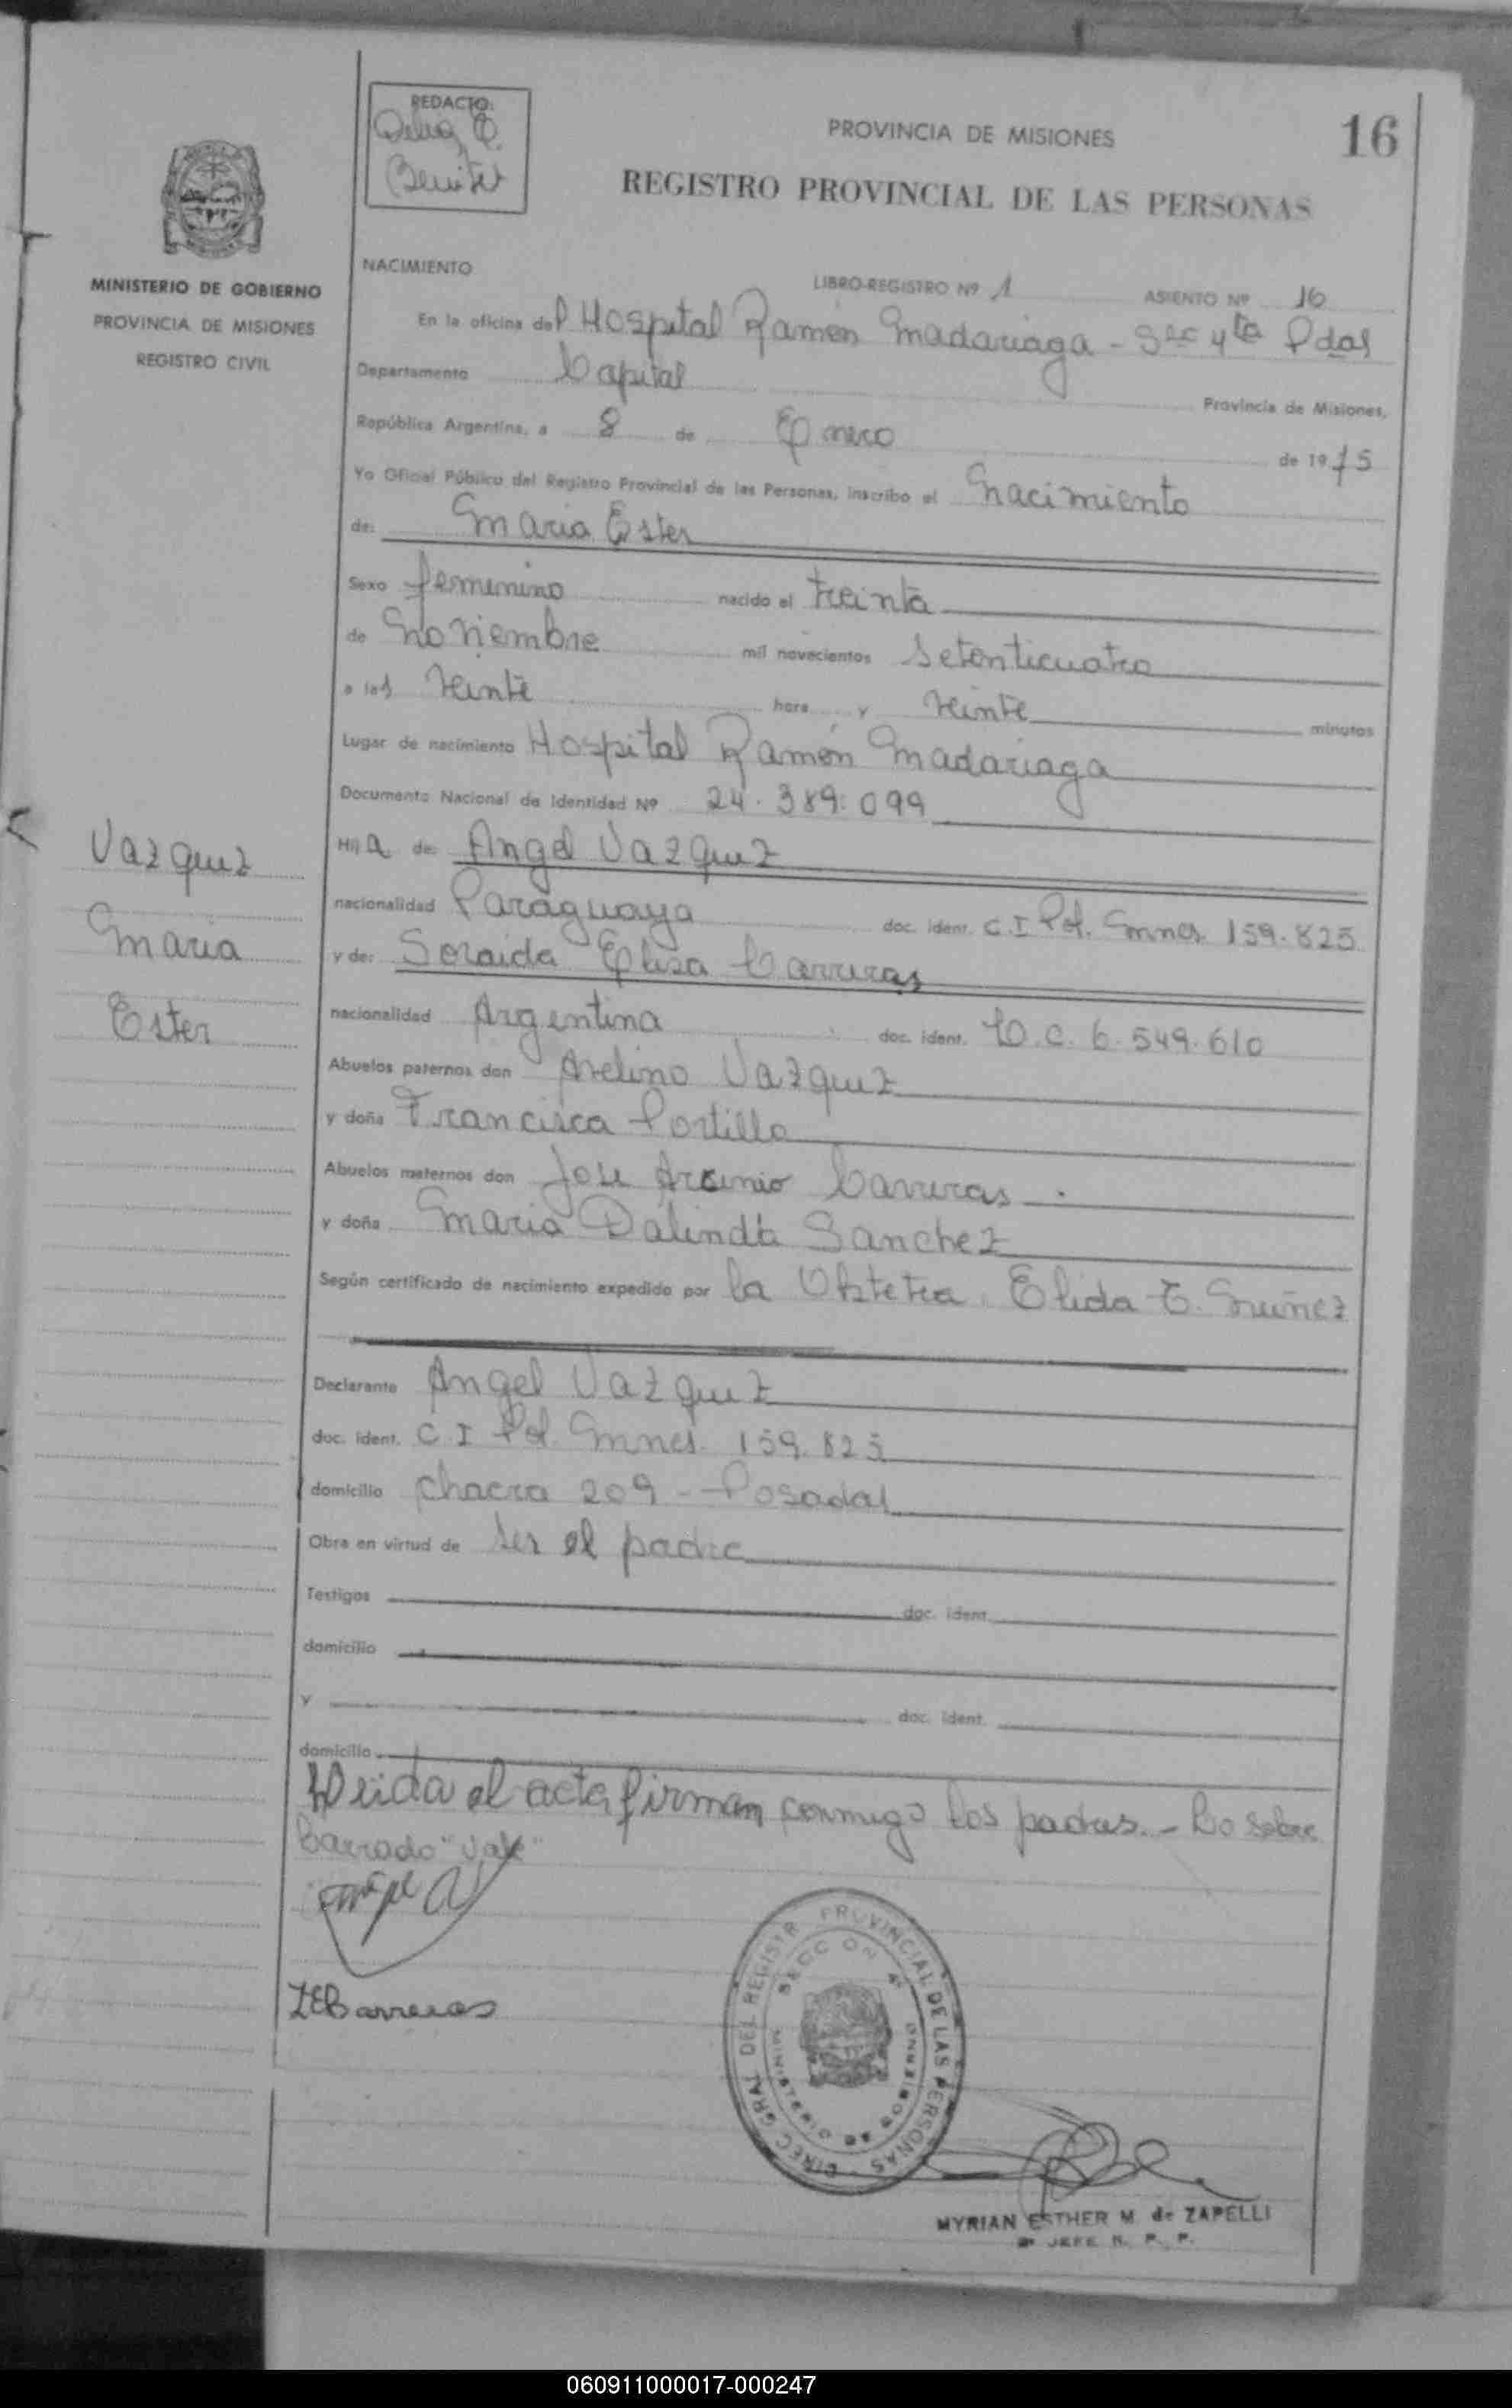 REDACTO:
Benitez
PROVINCIA DE MISIONES
16
REGISTRO PROVINCIAL DE LAS PERSONAS
MINISTERIO DE GOBIERNO
PROVINCIA DE MISIONES
REGISTRO CIVIL
NACIMIENTO
LIBRO-REGISTRO Nº 1 ASIENTO Nº 16
En la oficina del Hospital Ramón Madariaga - Sec 4ta Pdas
Departamento Capital Provincia de Misiones,
República Argentina, a 8 de Enero de 1975
Yo Oficial Público del Registro Provincial de las Personas, inscribo el Nacimiento
de: Maria Ester
Sexo femenino nacido el treinta
de Noviembre mil novecientos setenticuatro
a las veinte hora y veinte minutos
Lugar de nacimiento Hospital Ramón Madariaga
Documento Nacional de Identidad Nº 24.389.099
Hija de: Angel Vazquez
nacionalidad Paraguaya doc. ident. C.I Pol. Mnes. 159.825
y de: Soraida Elisa Carreras
nacionalidad Argentina doc. ident. L.C. 6.549.610
Abuelos paternos don Avelino Vazquez
y doña Francisca Portillo
Abuelos maternos don Jose Arsenio Carreras
y doña Maria Dalinda Sanchez
Según certificado de nacimiento expedido por la Obstetra Elida E. Nuñez
Vazquez
Maria
Ester
Declarante Angel Vazquez
doc. ident. C.I Pol. Mnes. 159.825
domicilio Chacra 209 - Posadas
Obra en virtud de ser el padre
Testigos doc. ident.
domicilio
y doc. ident.
domicilio
Leida el acta, firman conmigo los padres. - Lo sobre
barrado "Vale"
ZECarreras
DIREC. GRAL. DEL REGISTR PROVINCIAL DE LAS PERSONAS
SECCION 4ª
MINISTERIO DE GOBIERNO
MYRIAN ESTHER M. de ZAPELLI
JEFE R. P. P.
060911000017-000247